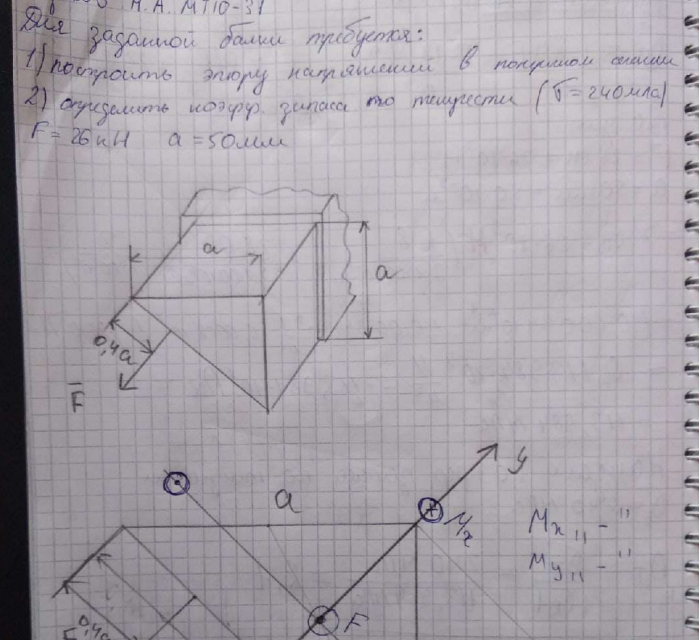 А.А. МТ10-31
Для заданной балки требуется:
1) построить эпюру напряжений в поперечном сечении
2) определить коэфф. запаса по текучести (σт=240мпа)
F = 26кН a = 50мм
a
a
0,4a
F
y
a
Mx
Mx " - "
My " - "
F
0,4a